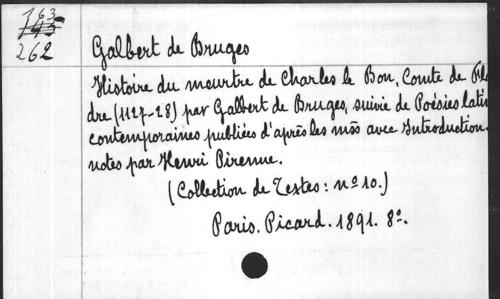 163
262
Galbert de Bruges
Histoire du meurtre de Charles le Bon, Comte de Fla
dre (1127-28) par Galbert de Bruges, suivie de Poésies latin
contemporaines publiées d'après les mss avec Introduction
notes par Henri Pirenne.
(Collection de Textes: nº 10.)
Paris. Picard. 1891. 8º.